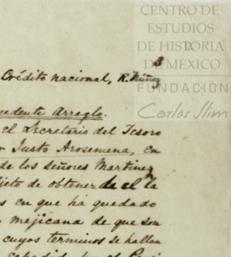 CENTRO DE
ESTUDIOS
DE HISTORIA
DE MEXICO
FUNDACIÓN
Carlos Slim
Crédito nacional, R. Núñez
cedente Arreglo.
el Secretario del Tesoro
Justo Arosemena, en
de los señores Martinez
de obtener de el la
en que ha quedado
mejicana de que son
cuyos terminos se hallan